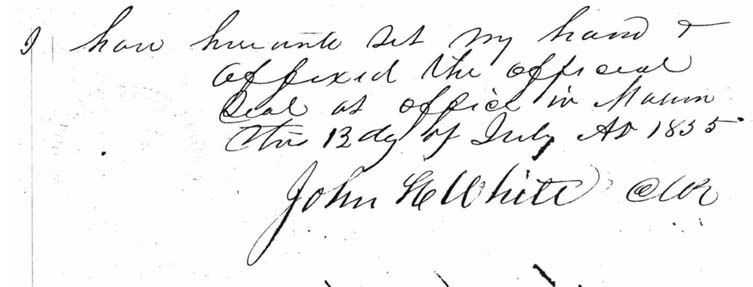 I have hereunto set my hand &
affixed the official
Seal at office in Macon
this 12 dy of July AD 1855
John H White Clk